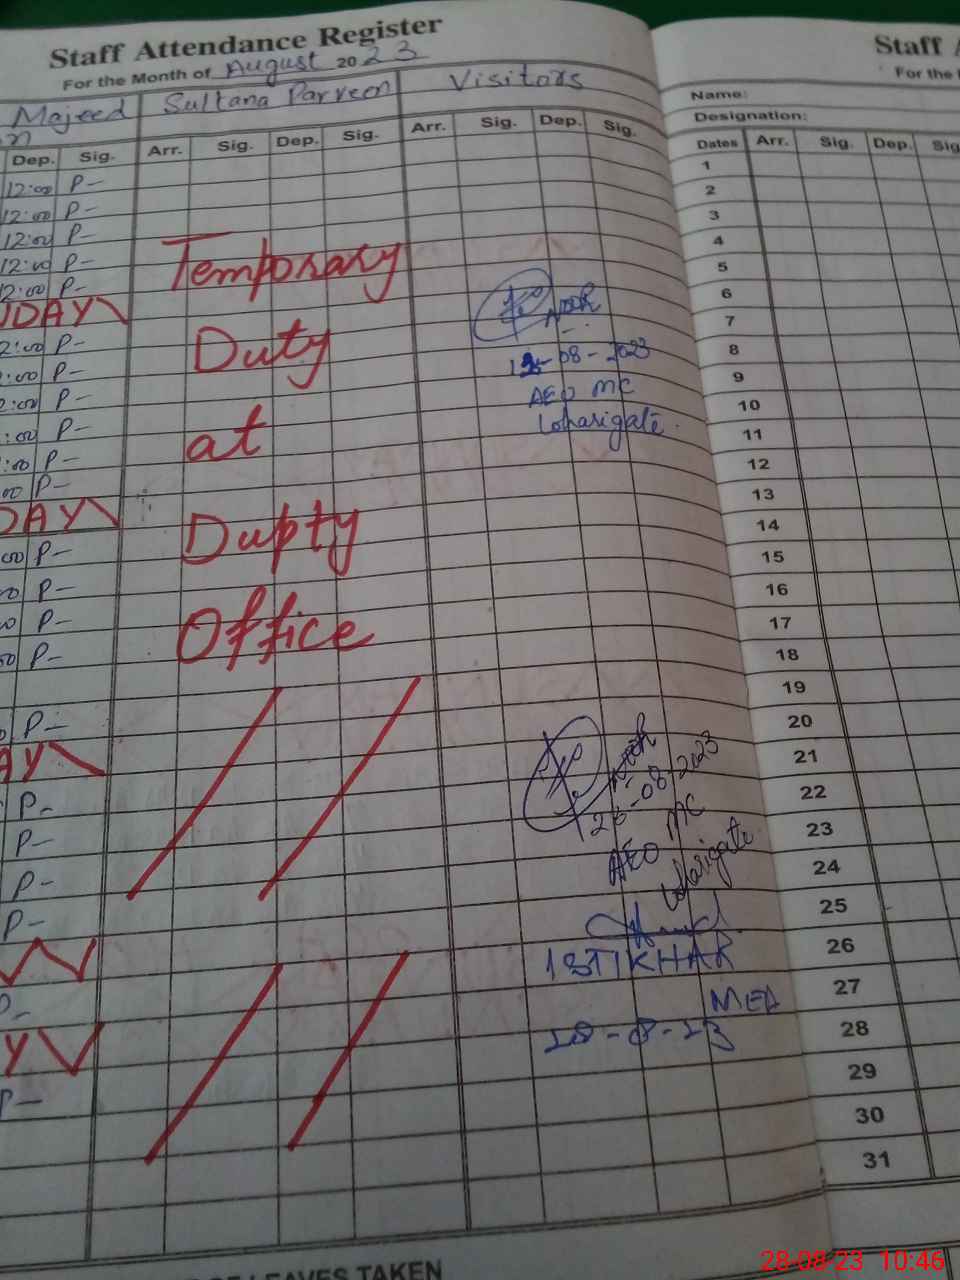 Staff Attendance Register
For the Month of August 2023
Majeed Sultana Parveen Visitors
Dep. Sig. Arr. Sig. Dep. Sig. Arr. Sig. Dep. Sig.
12:00 P-
12:00 P-
12:00 P-
12:00 P-
12:00 P-
DAY
2:00 P-
:00 P-
2:00 P-
:00 P-
:00 P-
00 P-
DAY
00 P-
P-
P-
P-
P-
AY
P-
P-
P-
P-
P-
Y
P-
Temporary
Duty
at
Dupty
Office
-08-2023
AEO MC
Loharigate
28-08-2023
AEO MC
Loharigate
ISTIKHAR
MEA
28-8-23
LEAVES TAKEN
Staff
For the
Name:
Designation:
Dates Arr. Sig. Dep. Sig
1
2
3
4
5
6
7
8
9
10
11
12
13
14
15
16
17
18
19
20
21
22
23
24
25
26
27
28
29
30
31
28-08-23 10:46